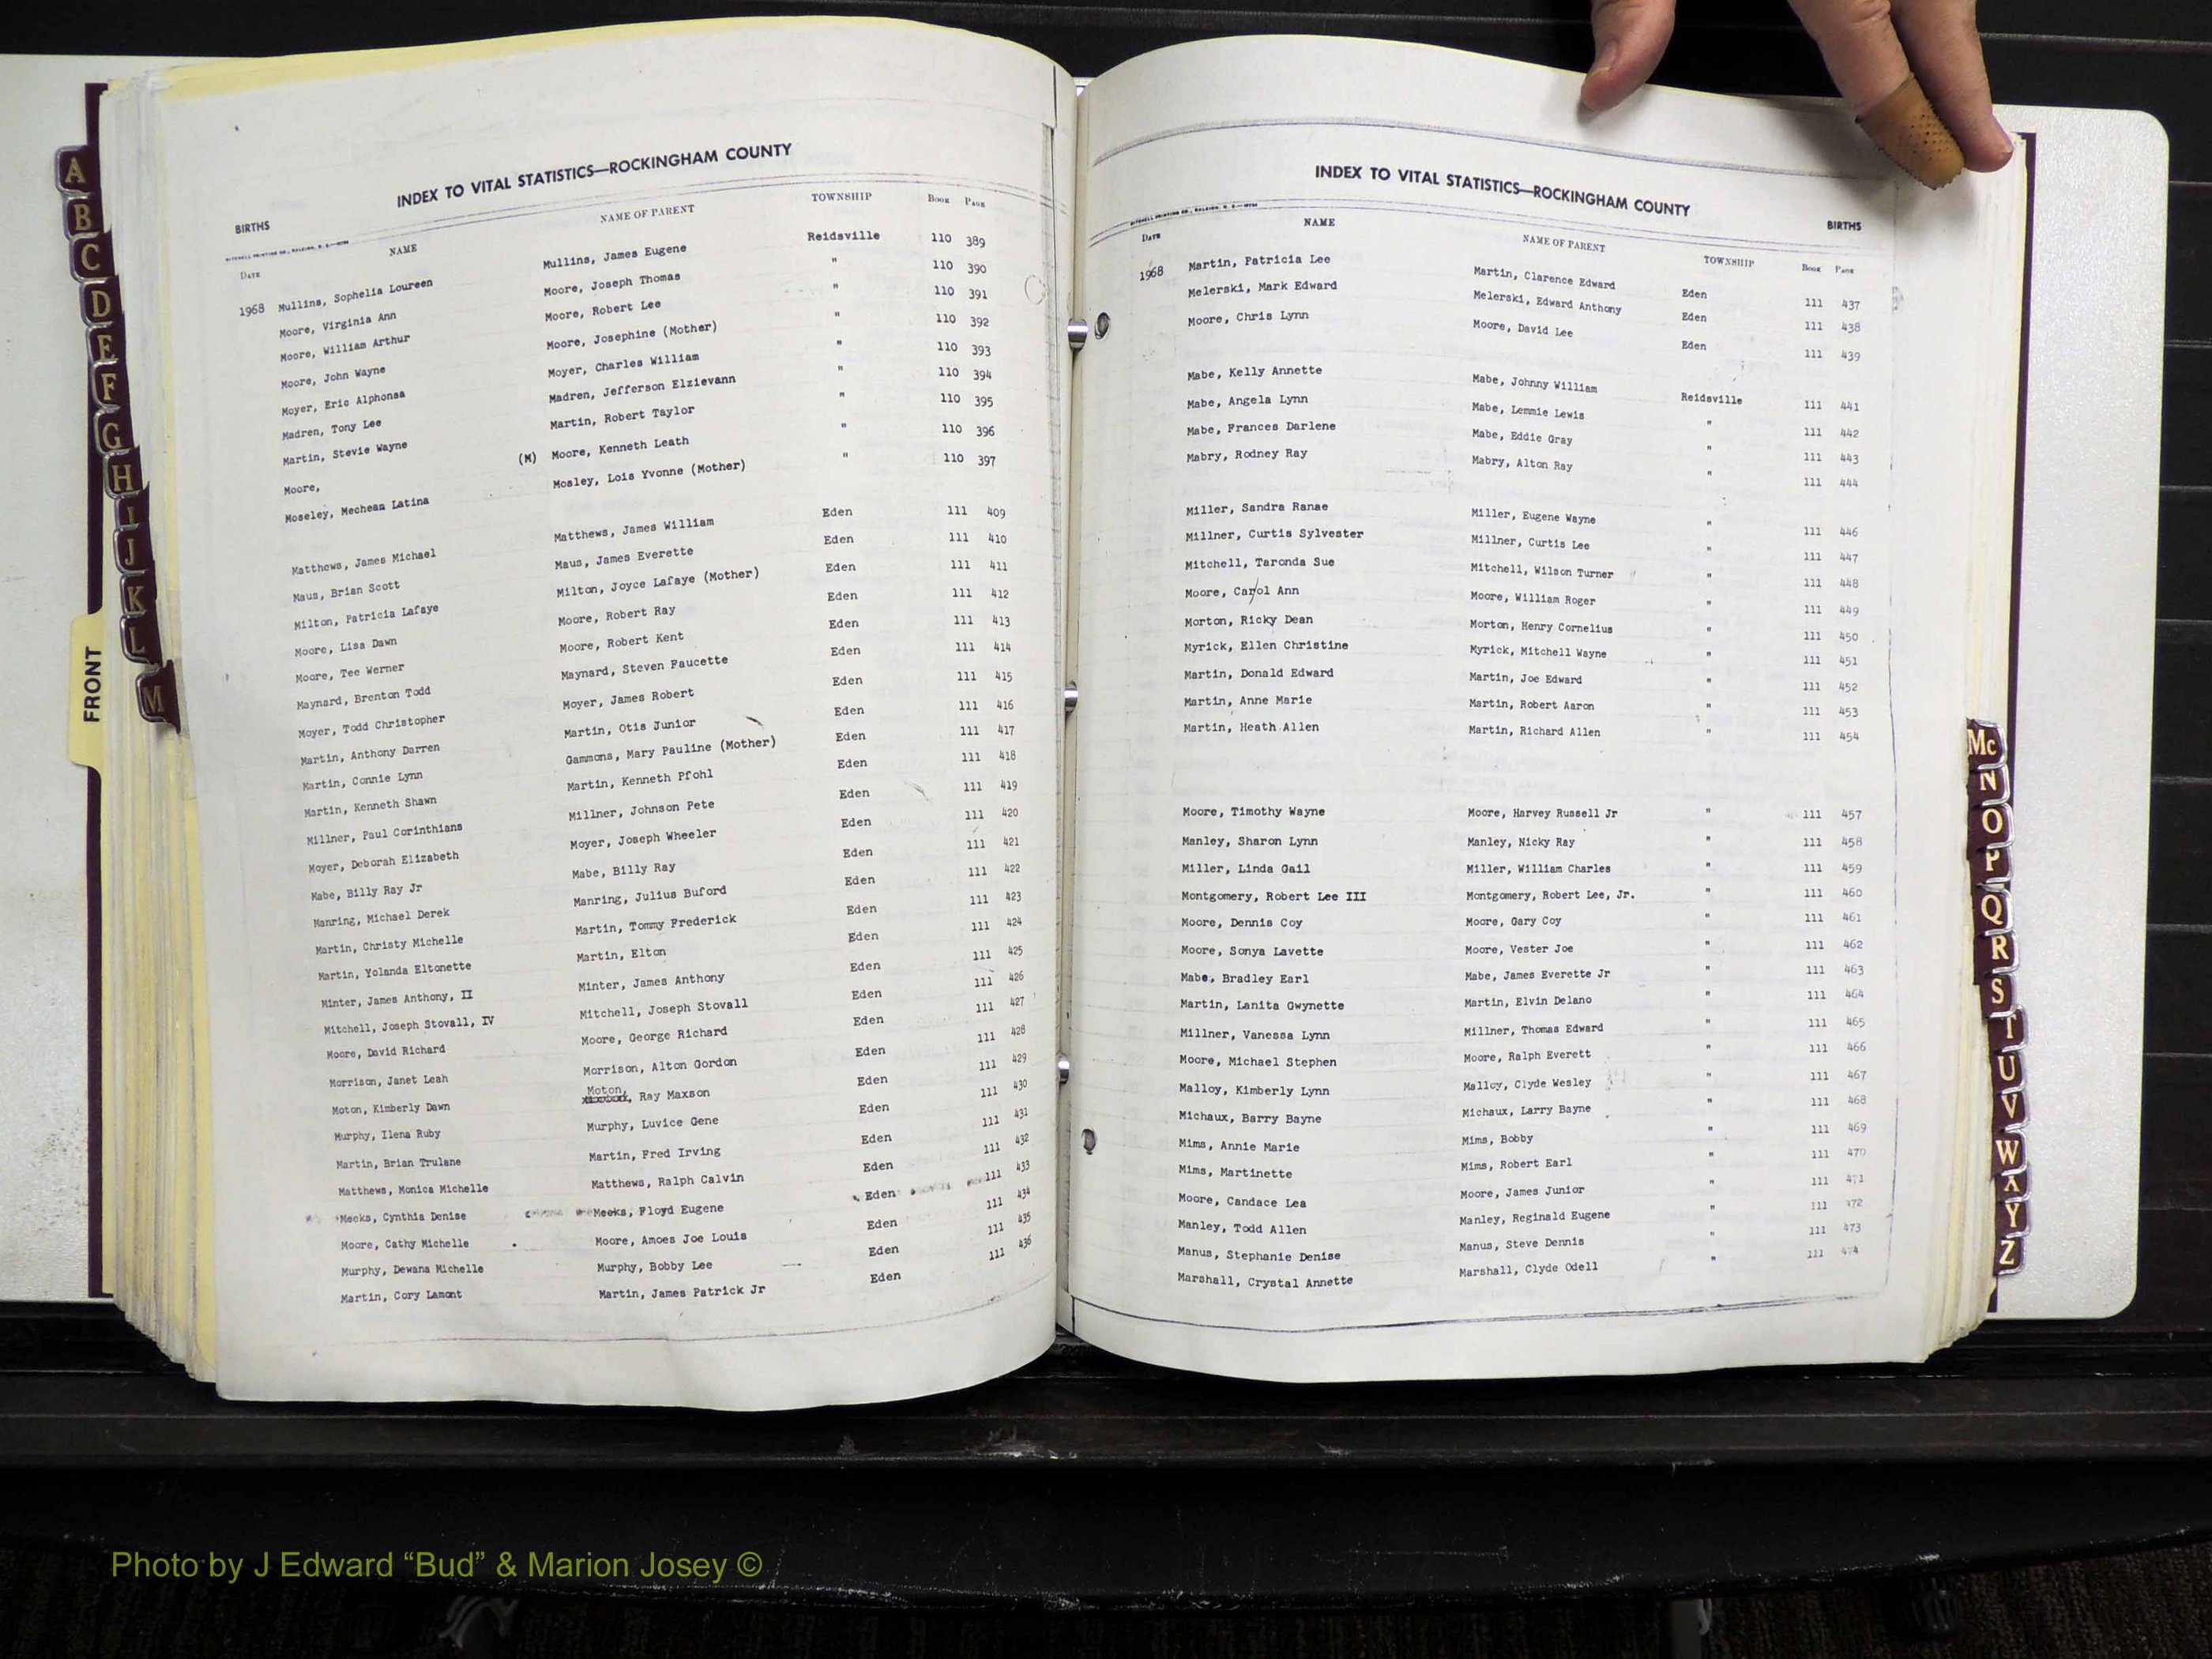 INDEX TO VITAL STATISTICS—ROCKINGHAM COUNTY
BIRTHS
DATE NAME NAME OF PARENT TOWNSHIP BOOK PAGE
1968 Mullins, Sophelia Loureen Mullins, James Eugene Reidsville 110 389
Moore, Virginia Ann Moore, Joseph Thomas " 110 390
Moore, William Arthur Moore, Robert Lee " 110 391
Moore, John Wayne Moore, Josephine (Mother) " 110 392
Moyer, Eric Alphonsa Moyer, Charles William " 110 393
Madren, Tony Lee Madren, Jefferson Elzievann " 110 394
Martin, Stevie Wayne Martin, Robert Taylor " 110 395
Moore, (M) Moore, Kenneth Leath " 110 396
Moseley, Mechean Latina Mosley, Lois Yvonne (Mother) " 110 397
Matthews, James Michael Matthews, James William Eden 111 409
Maus, Brian Scott Maus, James Everette Eden 111 410
Milton, Patricia Lafaye Milton, Joyce Lafaye (Mother) Eden 111 411
Moore, Lisa Dawn Moore, Robert Ray Eden 111 412
Moore, Tee Werner Moore, Robert Kent Eden 111 413
Maynard, Brenton Todd Maynard, Steven Faucette Eden 111 414
Moyer, Todd Christopher Moyer, James Robert Eden 111 415
Martin, Anthony Darren Martin, Otis Junior Eden 111 416
Martin, Connie Lynn Gammons, Mary Pauline (Mother) Eden 111 417
Martin, Kenneth Shawn Martin, Kenneth Pfohl Eden 111 418
Millner, Paul Corinthians Millner, Johnson Pete Eden 111 419
Moyer, Deborah Elizabeth Moyer, Joseph Wheeler Eden 111 420
Mabe, Billy Ray Jr Mabe, Billy Ray Eden 111 421
Manring, Michael Derek Manring, Julius Buford Eden 111 422
Martin, Christy Michelle Martin, Tommy Frederick Eden 111 423
Martin, Yolanda Eltonette Martin, Elton Eden 111 424
Minter, James Anthony, II Minter, James Anthony Eden 111 425
Mitchell, Joseph Stovall, IV Mitchell, Joseph Stovall Eden 111 426
Moore, David Richard Moore, George Richard Eden 111 427
Morrison, Janet Leah Morrison, Alton Gordon Eden 111 428
Moton, Kimberly Dawn Moton, Ray Maxson Eden 111 429
Murphy, Ilena Ruby Murphy, Luvice Gene Eden 111 430
Martin, Brian Trulane Martin, Fred Irving Eden 111 431
Matthews, Monica Michelle Matthews, Ralph Calvin Eden 111 432
Meeks, Cynthia Denise Meeks, Floyd Eugene Eden 111 433
Moore, Cathy Michelle Moore, Amoes Joe Louis Eden 111 434
Murphy, Dewana Michelle Murphy, Bobby Lee Eden 111 435
Martin, Cory Lamont Martin, James Patrick Jr Eden 111 436
INDEX TO VITAL STATISTICS—ROCKINGHAM COUNTY
BIRTHS
DATE NAME NAME OF PARENT TOWNSHIP BOOK PAGE
1968 Martin, Patricia Lee Martin, Clarence Edward Eden 111 437
Melerski, Mark Edward Melerski, Edward Anthony Eden 111 438
Moore, Chris Lynn Moore, David Lee Eden 111 439
Mabe, Kelly Annette Mabe, Johnny William Reidsville 111 441
Mabe, Angela Lynn Mabe, Lemmie Lewis " 111 442
Mabe, Frances Darlene Mabe, Eddie Gray " 111 443
Mabry, Rodney Ray Mabry, Alton Ray " 111 444
Miller, Sandra Ranae Miller, Eugene Wayne " 111 446
Millner, Curtis Sylvester Millner, Curtis Lee " 111 447
Mitchell, Taronda Sue Mitchell, Wilson Turner " 111 448
Moore, Carol Ann Moore, William Roger " 111 449
Morton, Ricky Dean Morton, Henry Cornelius " 111 450
Myrick, Ellen Christine Myrick, Mitchell Wayne " 111 451
Martin, Donald Edward Martin, Joe Edward " 111 452
Martin, Anne Marie Martin, Robert Aaron " 111 453
Martin, Heath Allen Martin, Richard Allen " 111 454
Moore, Timothy Wayne Moore, Harvey Russell Jr " 111 457
Manley, Sharon Lynn Manley, Nicky Ray " 111 458
Miller, Linda Gail Miller, William Charles " 111 459
Montgomery, Robert Lee III Montgomery, Robert Lee, Jr. " 111 460
Moore, Dennis Coy Moore, Gary Coy " 111 461
Moore, Sonya Lavette Moore, Vester Joe " 111 462
Mabe, Bradley Earl Mabe, James Everette Jr " 111 463
Martin, Lanita Gwynette Martin, Elvin Delano " 111 464
Millner, Vanessa Lynn Millner, Thomas Edward " 111 465
Moore, Michael Stephen Moore, Ralph Everett " 111 466
Malloy, Kimberly Lynn Malloy, Clyde Wesley " 111 467
Michaux, Barry Bayne Michaux, Larry Bayne " 111 468
Mims, Annie Marie Mims, Bobby " 111 469
Mims, Martinette Mims, Robert Earl " 111 470
Moore, Candace Lea Moore, James Junior " 111 471
Manley, Todd Allen Manley, Reginald Eugene " 111 472
Manus, Stephanie Denise Manus, Steve Dennis " 111 473
Marshall, Crystal Annette Marshall, Clyde Odell " 111 474
A
B
C
D
E
F
G
H
I
J
K
L
M
FRONT
Mc
N
O
P
Q
R
S
T
U
V
W
X
Y
Z
Photo by J Edward “Bud” & Marion Josey ©